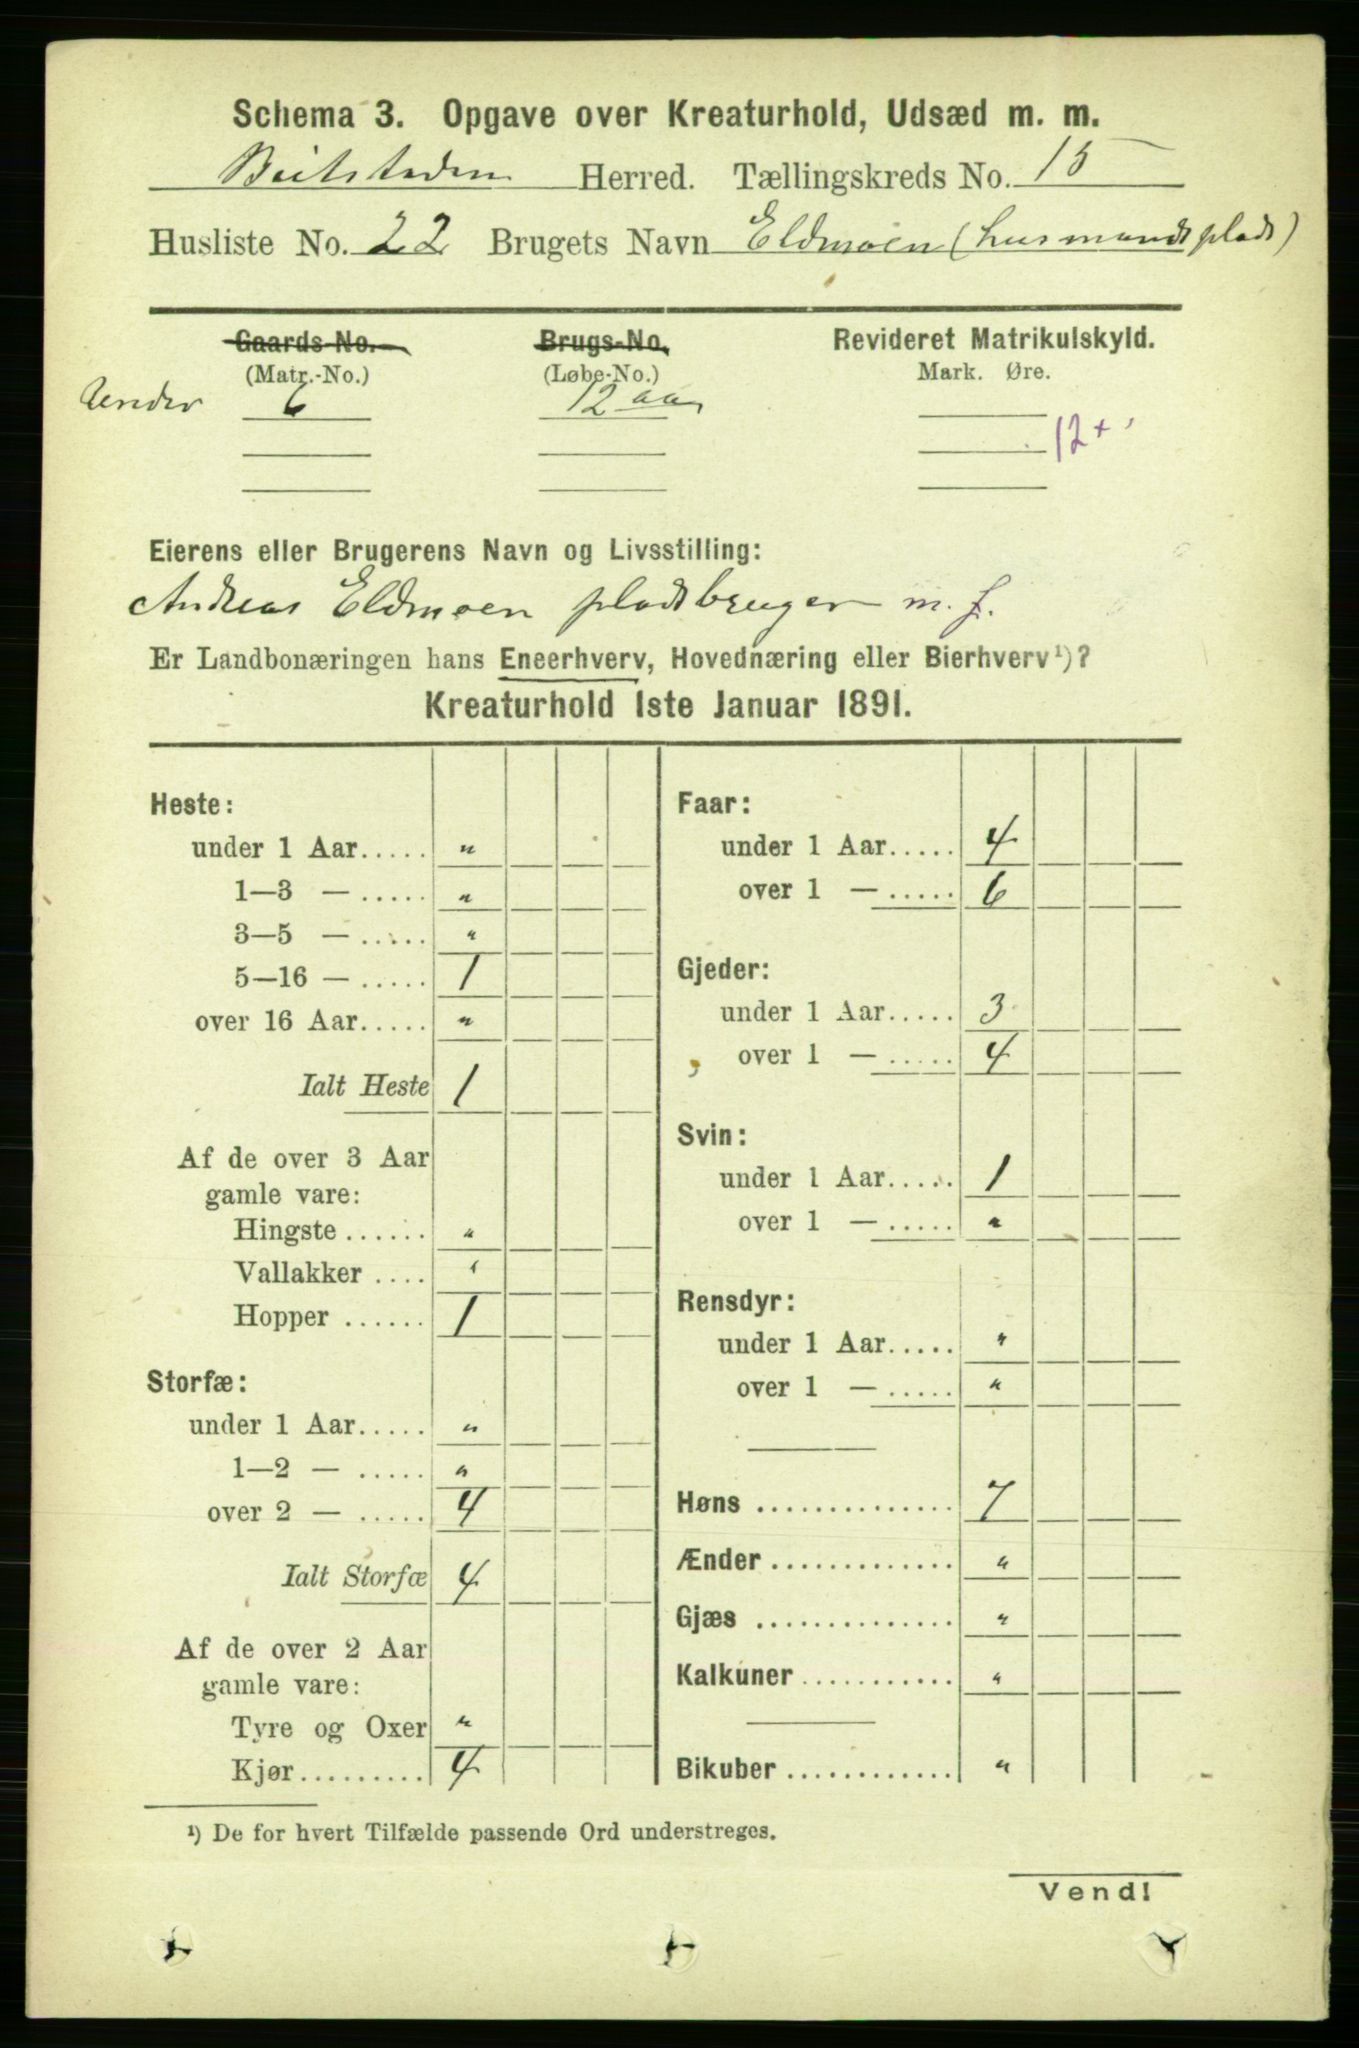 Schema 3. Opgave over Kreaturhold, Udsæd m. m.
Beitstaden Herred. Tællingskreds No. 15
Husliste No. 22 Brugets Navn Eldmoen (husmandsplads)
Gaards-No. Brugs-No. Revideret Matrikulskyld.
(Matr.-No.) (Løbe-No.) Mark. Øre.
Under 6 12 aa
12 +
Eierens eller Brugerens Navn og Livsstilling:
Andreas Eldmoen pladsbruger m. f.
Er Landbonæringen hans Eneerhverv, Hovednæring eller Bierhverv¹)?
Kreaturhold 1ste Januar 1891.
Heste:
under 1 Aar..... "
1—3 — ..... "
3—5 — ..... "
5—16 — ..... 1
over 16 Aar..... "
Ialt Heste 1
Af de over 3 Aar
gamle vare:
Hingste ...... "
Vallakker .... "
Hopper ...... 1
Storfæ:
under 1 Aar..... "
1—2 — ..... "
over 2 — ..... 4
Ialt Storfæ 4
Af de over 2 Aar
gamle vare:
Tyre og Oxer "
Kjør......... 4
Faar:
under 1 Aar..... 4
over 1 — ..... 6
Gjeder:
under 1 Aar..... 3
over 1 — ..... 4
Svin:
under 1 Aar..... 1
over 1 — ..... "
Rensdyr:
under 1 Aar..... "
over 1 — ..... "
Høns .............. 7
Ænder ............. "
Gjæs .............. "
Kalkuner ........... "
Bikuber ............ "
¹) De for hvert Tilfælde passende Ord understreges.
Vend!